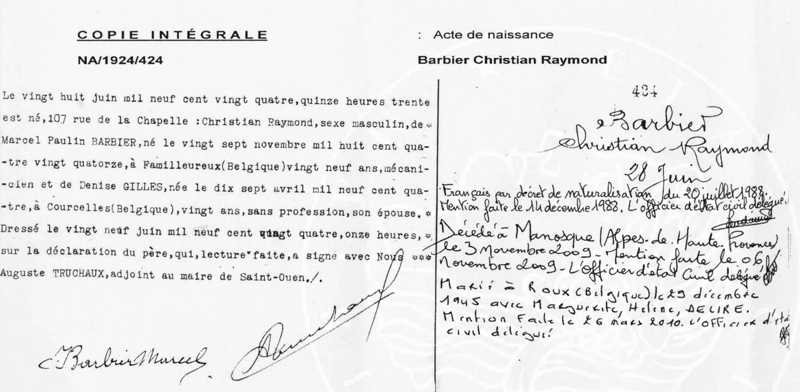 COPIE INTÉGRALE : Acte de naissance
NA/1924/424 Barbier Christian Raymond
Le vingt huit juin mil neuf cent vingt quatre,quinze heures trente
est né,107 rue de la Chapelle :Christian Raymond,sexe masculin,de
Marcel Paulin BARBIER,né le vingt sept novembre mil huit cent qua-
tre vingt quatorze,à Familleureux(Belgique)vingt neuf ans,mécani-
cien et de Denise GILLES,née le dix sept avril mil neuf cent qua-
tre,à Courcelles(Belgique),vingt ans,sans profession,son épouse.
Dressé le vingt neuf juin mil neuf cent vingt quatre,onze heures,
sur la déclaration du père,qui,lecture faite,a signé avec Nous
Auguste TRUCHAUX,adjoint au maire de Saint-Ouen./.
Barbier Marcel
424
Barbier
Christian Raymond
28 Juin
Français par décret de naturalisation du 20 juillet 1988.
Mention faite le 14 décembre 1988. L'officier d'état civil délégué.
Décédé à Manosque (Alpes-de-Haute Provence)
le 3 Novembre 2009 - Mention faite le 06
Novembre 2009 - L'Officier d'état Civil délégué
Marié à Roux (Belgique) le 29 décembre
1945 avec Marguerite, Hélène, DELIRE.
Mention Faite le 26 mars 2010. L'officier d'état
civil délégué